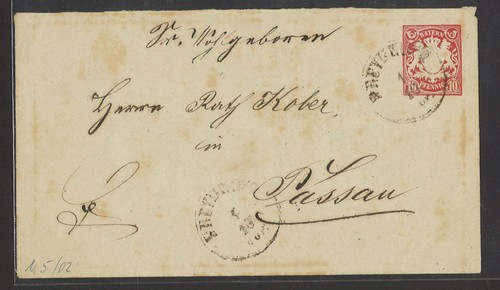 Sr. Wohlgeboren
BAYERN
10 PFENNIG 10
Herrn Rath Kober
in
Passau
U5/02